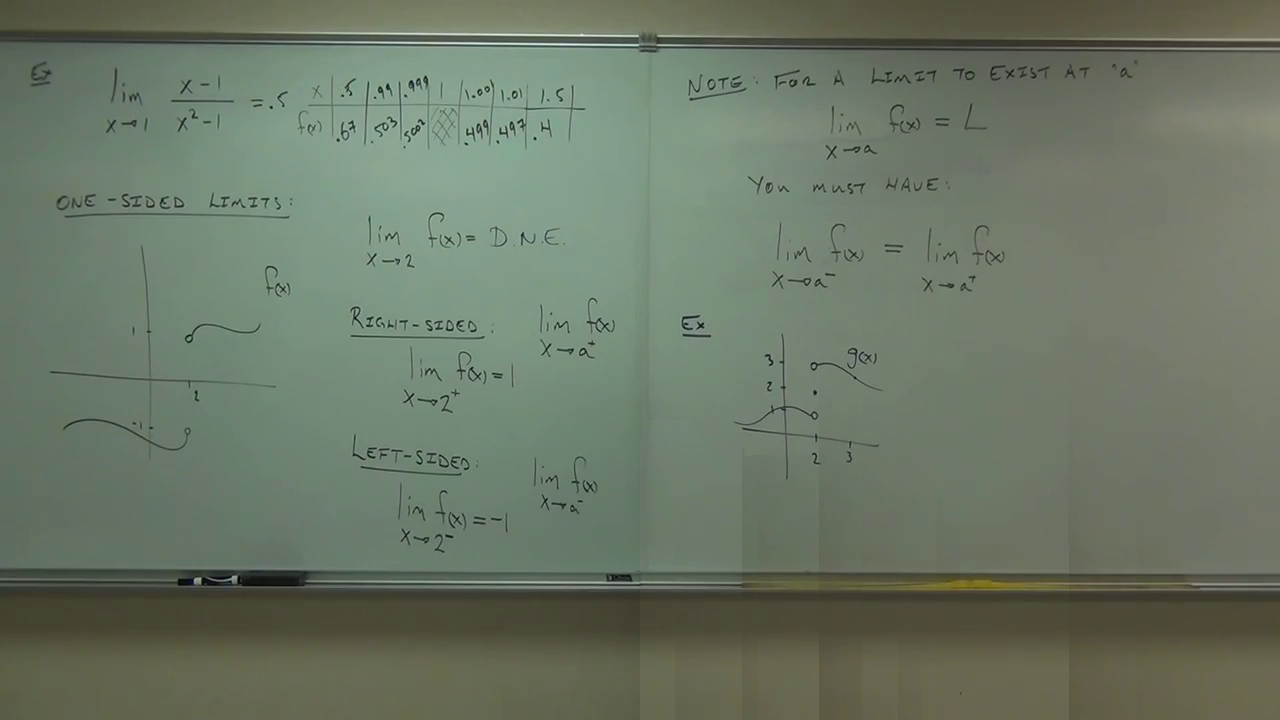 Ex
lim x→1 x-1 / x²-1 = .5
x | .5 | .99 | .999 | 1 | 1.00 | 1.01 | 1.5
f(x) | .67 | .503 | .5002 | | .499 | .497 | .4
ONE-SIDED LIMITS:
f(x)
1
2
-1
lim x→2 f(x) = D.N.E.
RIGHT-SIDED: lim x→a⁺ f(x)
lim x→2⁺ f(x) = 1
LEFT-SIDED: lim x→a⁻ f(x)
lim x→2⁻ f(x) = -1
NOTE: FOR A LIMIT TO EXIST AT "a"
lim x→a f(x) = L
YOU MUST HAVE:
lim x→a⁻ f(x) = lim x→a⁺ f(x)
Ex
3 g(x)
2
1
2 3